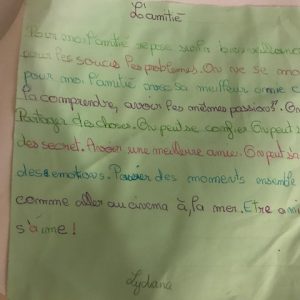 L'amitié
Pour moi l'amitié repose sur la bienveillance
pour les soucis les problèmes. On ne se mo
pour moi l'amitié avec sa meilleur amie c
la comprendre, avoir les mêmes passions. On
Partager des choses. On peut se confier. On peut
des secret. Avoir une meilleure amie. On peut
des emotions. Passer des moments ensemble
comme aller au cinema à la mer. Etre
s'aime!
Lydiana